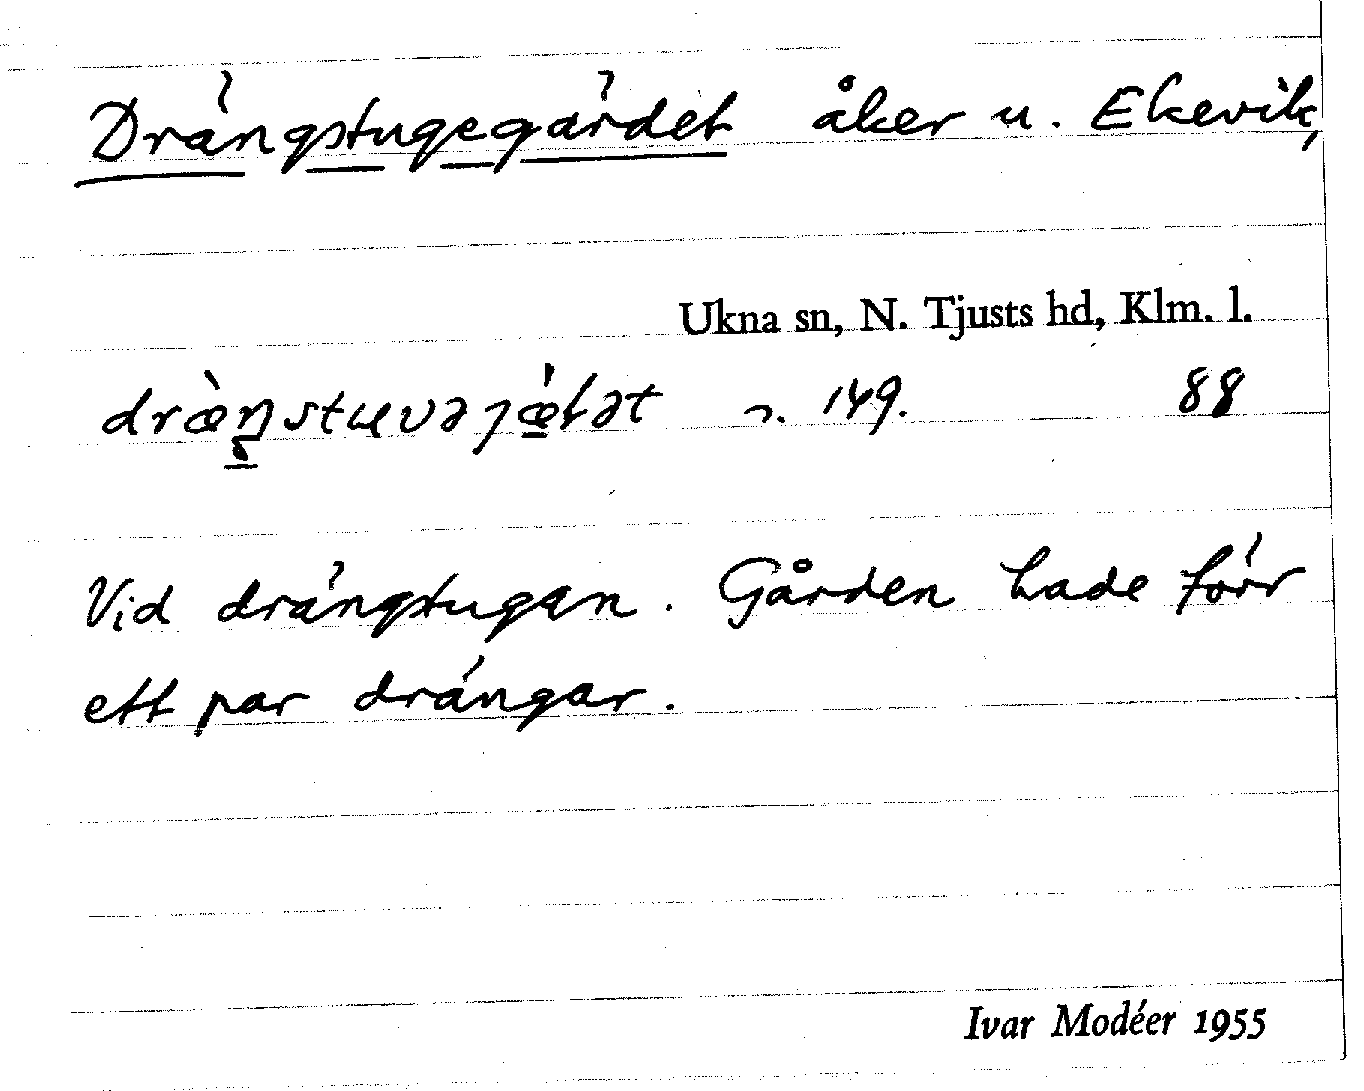 Drängstugegärdet åker u. Ekevik,
Ukna sn, N. Tjusts hd, Klm. l.
n. 149. 88
Vid drängstugan. Gården hade förr
ett par drängar.
Ivar Modéer 1955